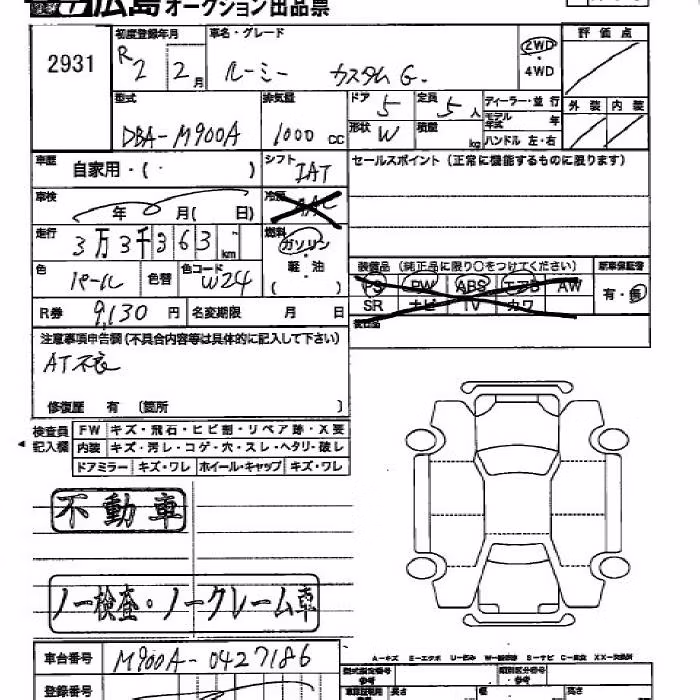 広島オークション出品票
2931
初度登録年月
R2 2月
車名・グレード
ルーミー カスタム G.
2WD
・
4WD
評価点
外装 内装
型式
DBA-M900A
排気量
1000 cc
ドア 5
定員 5人
形状 W
積載 kg
ディーラー・並行
モデル年式 年
ハンドル 左・右
車歴 自家用・( )
シフト IAT
セールスポイント (正常に機能するものに限ります)
車検 年 月( 日)
冷房 AAC
走行 3万3千363 km
燃料
ガソリン
・
軽・油
( )
色 パール
色替
色コード W24
装備品 (純正品に限り○をつけてください)
PS PW ABS エアB AW
SR ナビ TV カワ
新車保証書
有・無
R券 9,130 円
名変期限 月 日
後日品
注意事項申告欄(不具合内容等は具体的に記入して下さい)
AT不良
修復歴 有 (箇所 )
検査員
記入欄
FW キズ・飛石・ヒビ割・リペア跡・X要
内装 キズ・汚レ・コゲ・穴・スレ・ヘタリ・破レ
ドアミラー キズ・ワレ ホイール・キャップ キズ・ワレ
不動車
ノー検査・ノークレーム車
A-キズ E-エクボ U-凹み W-補修跡 S-サビ C-腐食 XX-交換済
車台番号 M900A-0427186
型式指定番号
類別区分番号
登録番号
参考
長さ
幅
高さ